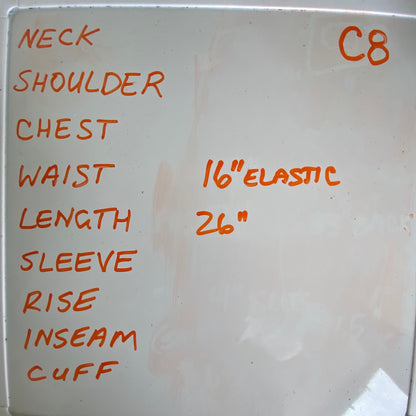 C8
NECK
SHOULDER
CHEST
WAIST 16" ELASTIC
LENGTH 26"
SLEEVE
RISE
INSEAM
CUFF